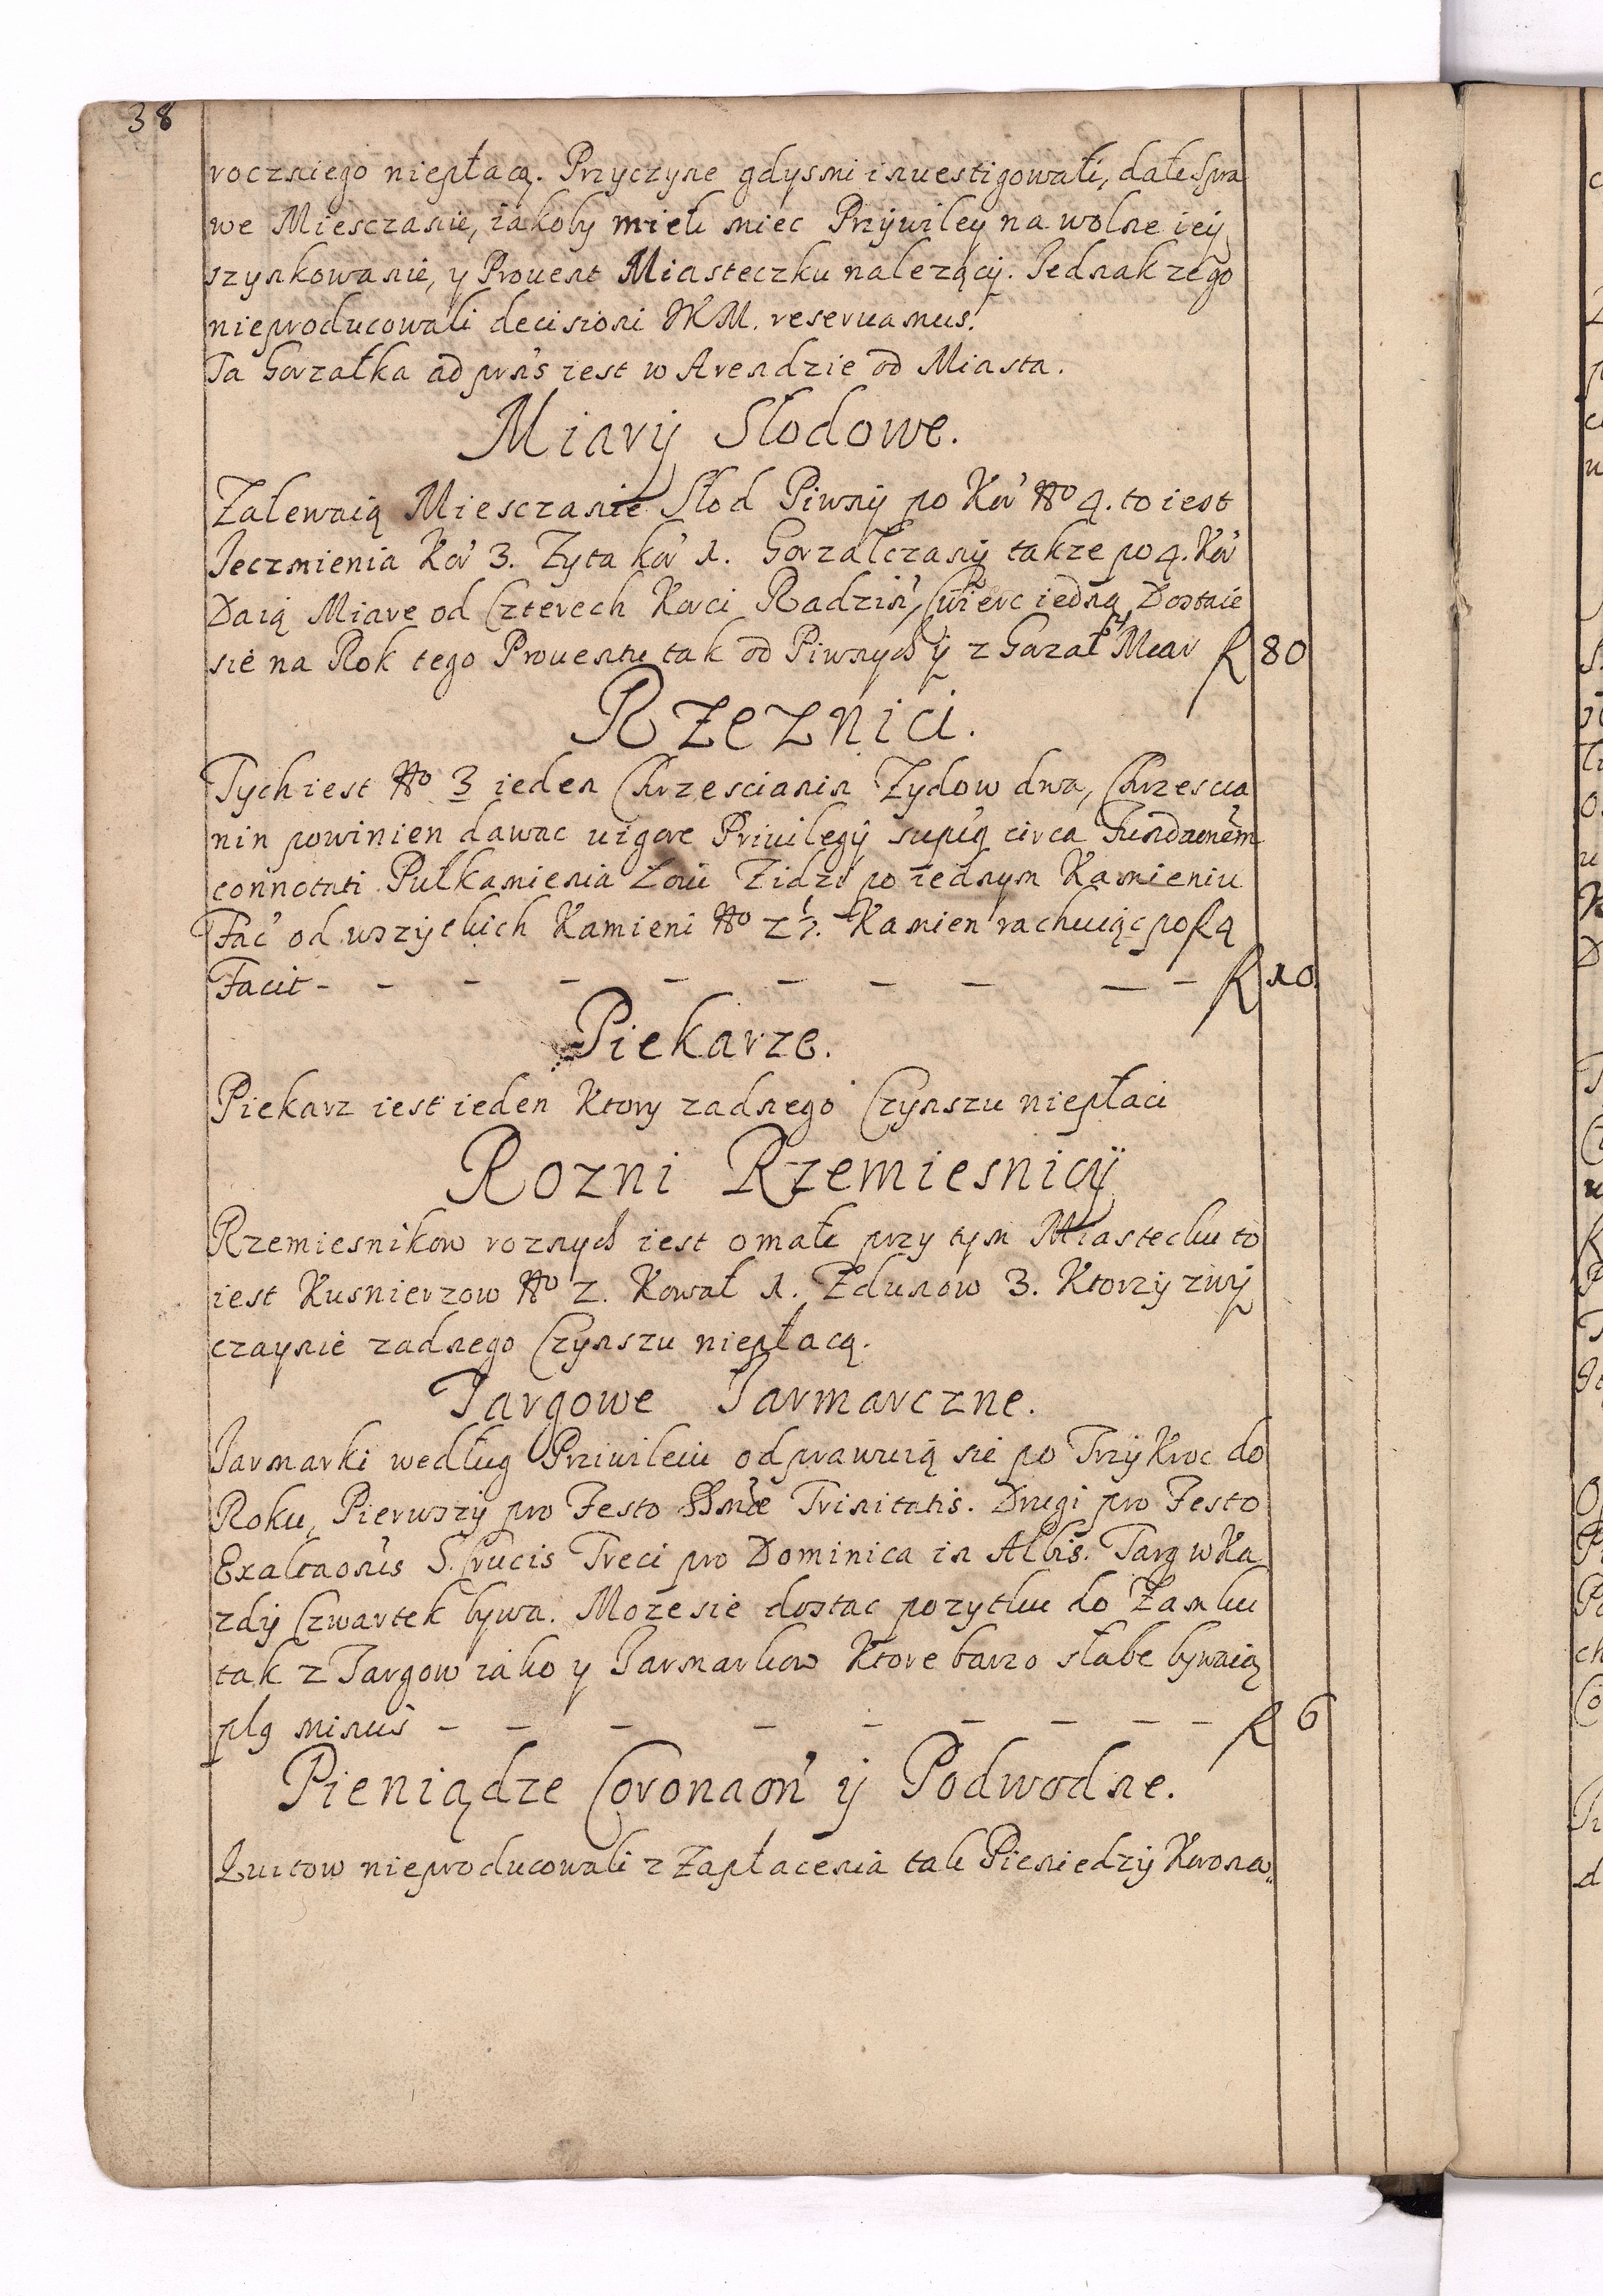 38
rocznego niepłacą. Przyczyne gdysmi inuestigowali, dali spra
we Miesczanie, iakoby mieli miec Przywiley na wolne iey
szynkowanie, y Prouent Miasteczku nalezący. Jednak zego
nieproducowali decisioni JKM. reseruamus.
Ta Gorzałka ad pnś iest w Arendzie od Miasta.
Miary Słodowe.
Zalewaią Miesczanie Słod Piwny po Kor No 4. to iest
Jeczmienia Kor 3. Zyta kor 1. Gorzałczany takze po 4. Kor
Daią Miare od Czterech Korci Radziń, cwierc iedną Dostaie
sie na Rok tego Prouentu tak od Piwnych y z Gorzał Miar f 80
Rzeznici.
Tych iest No 3 ieden Chrzescianin Zydow dwa, Chrzescia
nin powinien dawac uigore Priuilegij supiq circa Fundaonem
connotati Pułkamienia Łoiu Zidzi po iednym Kamieniu
Fać od wszyckich Kamieni No 2½. Kamien rachuiąc po f 4
Facit - - - - - - - - - - f 10.
Piekarze.
Piekarz iest ieden Ktory zadnego Czynszu niepłaci
Rozni Rzemiesnicy
Rzemiesnikow roznych iest omali przy tym Miasteczku to
iest Kusnierzow No 2. Kowal 1. Zdunow 3. Ktorzy zwy
czaynie zadnego Czynszu niepłacą.
Targowe Jarmarczne.
Jarmarki według Priuileiu odprawuią sie po Trzy Kroc do
Roku, Pierwszy pro Festo SSmae Trinitatis. Drugi pro Festo
Exaltaonis S. Crucis Treci pro Dominica in Albis. Targ w Ka
zdy Czwartek bywa. Moze sie dostac pozytku do Zamku
tak z Targow iako y Jarmarkow Ktore barzo słabe bywaią
plq minus - - - - - - - - - f 6
Pieniądze Coronaoń y Podwodne.
Kwitow nieproducowali z Zapłacenia tak Pieniedzy Korona„